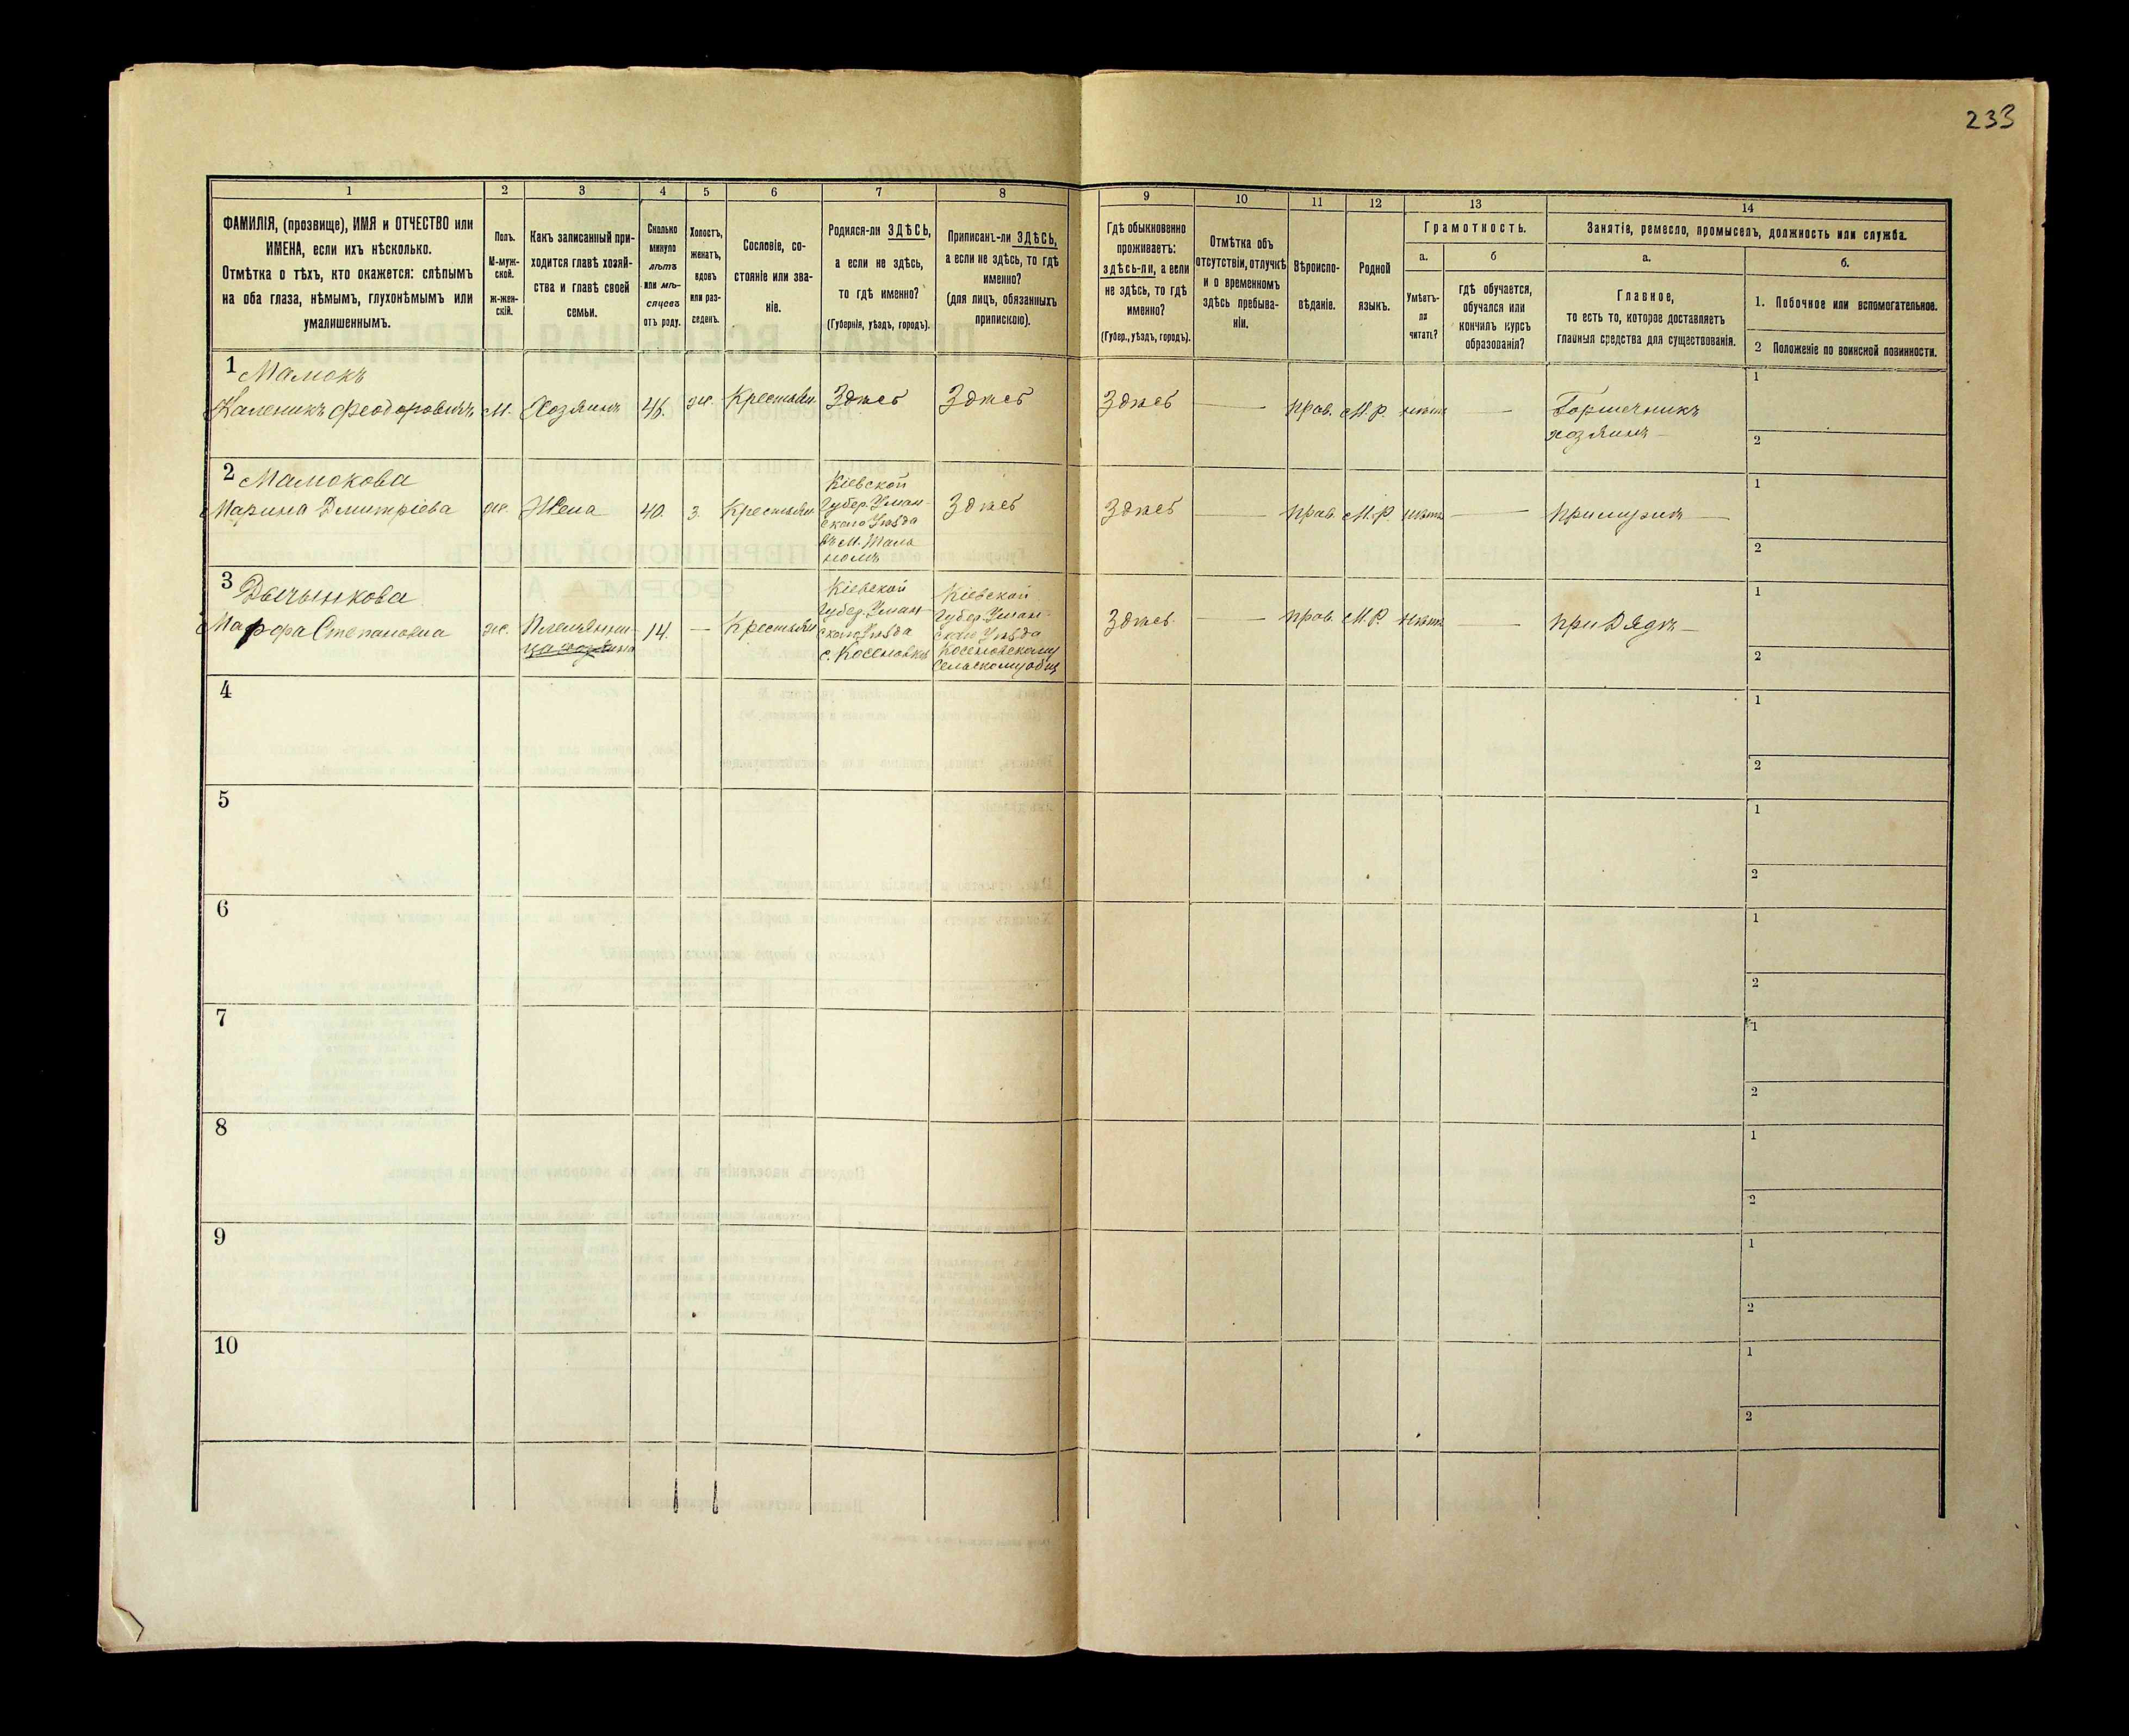 233
1
2
3
4
5
6
7
8
9
10
11
12
13
14
ФАМИЛІЯ, (прозвище), ИМЯ и ОТЧЕСТВО или
ИМЕНА, если ихъ нѣсколько.
Отмѣтка о тѣхъ, кто окажется: слѣпымъ
на оба глаза, нѣмымъ, глухонѣмымъ или
умалишеннымъ.
Полъ.
М-муж-
ской.
ж-жен-
скій.
Какъ записанный при-
ходится главѣ хозяй-
ства и главѣ своей
семьи.
Сколько
минуло
лѣтъ
или мѣ-
сяцевъ
отъ роду.
Холостъ,
женатъ,
вдовъ
или раз-
веденъ.
Сословіе, со-
стояніе или зва-
ніе.
Родился-ли ЗДѢСЬ,
а если не здѣсь,
то гдѣ именно?
(Губернія, уѣздъ, городъ).
Приписанъ-ли ЗДѢСЬ,
а если не здѣсь, то гдѣ
именно?
(для лицъ, обязанныхъ
припискою).
Гдѣ обыкновенно
проживаетъ:
здѣсь-ли, а если
не здѣсь, то гдѣ
именно?
(Губер., уѣздъ, городъ).
Отмѣтка объ
отсутствіи, отлучкѣ
и о временномъ
здѣсь пребыва-
ніи.
Вѣроиспо-
вѣданіе.
Родной
языкъ.
Грамотность.
а.
Умѣетъ-
ли
читать?
б
гдѣ обучается,
обучался или
кончилъ курсъ
образованія?
Занятіе, ремесло, промыселъ, должность или служба.
а.
Главное,
то есть то, которое доставляетъ
главныя средства для существованія.
б.
1. Побочное или вспомогательное.
2 Положеніе по воинской повинности.
1 Мамокъ
Каленикъ Феодоровичъ
м.
Хозяинъ
46.
ж.
Крестьян.
Здѣсь
Здѣсь
Здѣсь
—
прав.
М.Р.
нѣтъ
—
Горшечникъ
хозяинъ —
1
2
2 Мамокова
Марина Дмитріева
ж.
Жена
40.
З.
Крестьян
Кіевской
Губер. Уман-
скаго Уѣзда
въ М. Таль
номъ
Здѣсь
Здѣсь
—
прав.
М.Р.
нѣтъ
—
при мужѣ —
1
2
3 Дычынкова
Марфа Степановна
ж.
Племянни-
ца хозяина
14.
—
Крестьян
Кіевской
Губер. Уман-
скаго Уѣзда
с. Косеновкѣ
Кіевской
Губер. Уман-
скаго Уѣзда
Косеновскому
Сельскому общ
Здѣсь.
—
прав.
М.Р.
нѣтъ
—
при Дядѣ —
1
2
4
1
2
5
1
2
6
1
2
7
1
2
8
1
2
9
1
2
10
1
2